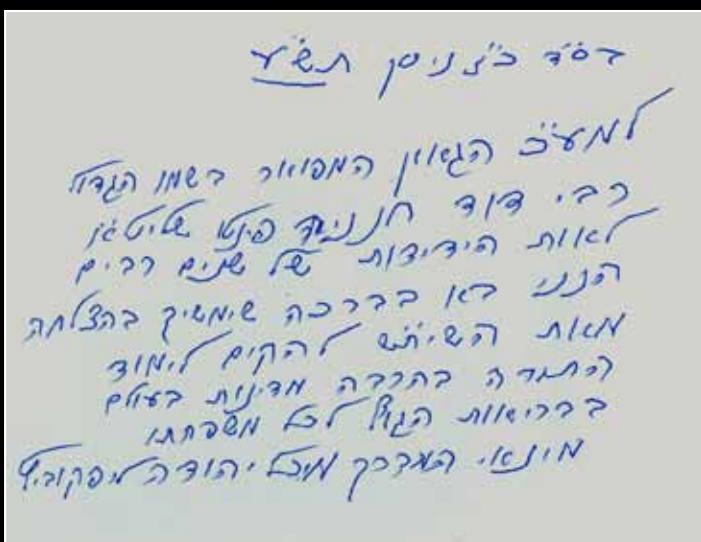 בס"ד כ"ג ניסן תש"ע
למע"כ הגאון המפואר בשמו הגדול
רבי דוד חנניה פינטו שליט"א
לאות הידידות של שנים רבים
הנני בא בברכה שימשיך בהצלחה
מאת השי"ת להקים לימוד
התורה בהרבה מדינות בעולם
בבריאות הגוף לכל משפחתו
מינאי המברך מיכל יהודה ליפקוביץ